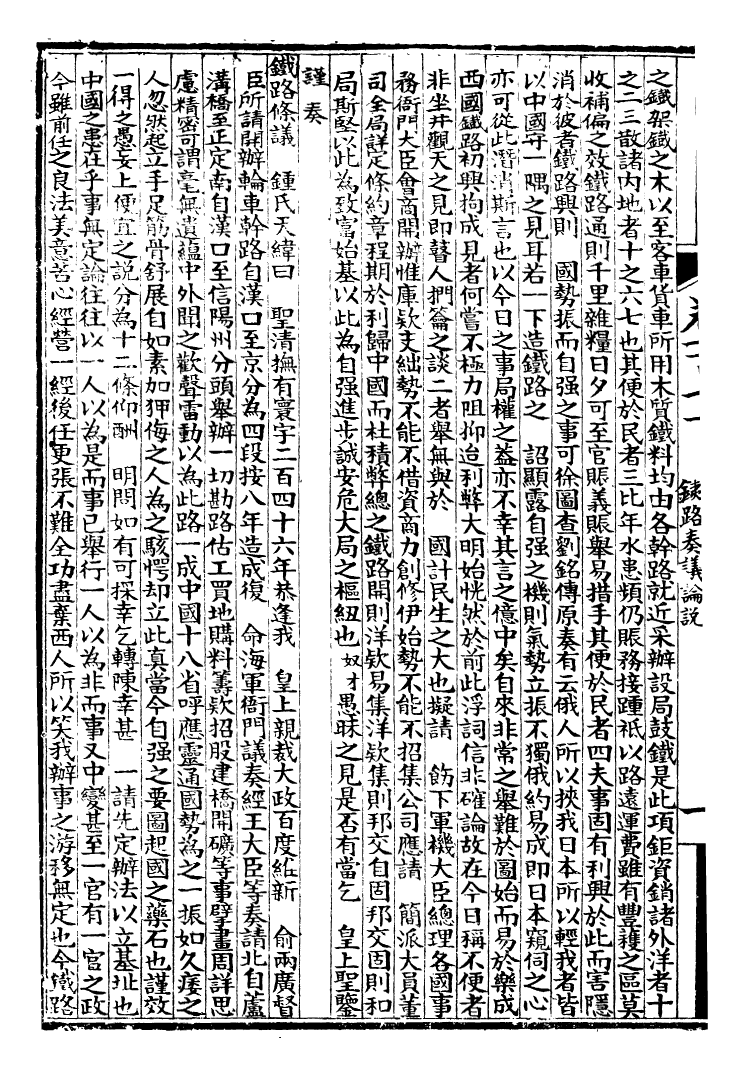 之鐵架鐵之木以至客車貨車所用木質鐵料均由各幹路就近采辦設局鼓鐵是此項鉅資銷諸外洋者十
之二三散諸内地者十之六七也其便於民者三比年水患頻仍賑務接踵衹以路遠運費雖有豐穫之區莫
收補偏之效鐵路通則千里雜糧日夕可至官賑義賑舉易措手其便於民者四夫事固有利興於此而害隱
消於彼者鐵路興則 國勢振而自强之事可徐圖查劉銘傳原奏有云俄人所以挾我日本所以輕我者皆
以中國守一隅之見耳若一下造鐵路之 詔顯露自强之機則氣勢立振不獨俄約易成即日本窺伺之心
亦可從此潛消斯言也以今日之事局權之益亦不幸其言之億中矣自來非常之舉難於圖始而易於樂成
西國鐵路初興拘成見者何嘗不極力阻抑迨利弊大明始恍然於前此浮詞信非確論故在今日稱不便者
非坐井觀天之見即瞽人捫籥之談二者舉無與於 國計民生之大也擬請 飭下軍機大臣總理各國事
務衙門大臣會商開辦惟庫欵支絀勢不能不借資商力創修伊始勢不能不招集公司應請 簡派大員董
司全局詳定條約章程期於利歸中國而杜積弊總之鐵路開則洋欵易集洋欵集則邦交自固邦交固則和
局斯堅以此為致富始基以此為自强進步誠安危大局之樞紐也奴才愚昧之見是否有當乞 皇上聖鑒
謹 奏
鐵路條議 鍾氏天緯曰 聖清撫有寰宇二百四十六年恭逢我 皇上親裁大政百度維新 俞兩廣督
臣所請開辦輪車幹路自漢口至京分為四段按八年造成復 命海軍衙門議奏經王大臣等奏請北自蘆
溝橋至正定南自漢口至信陽州分頭舉辦一切勘路估工買地購料籌欵招股建橋開礦等事擘畫周詳思
慮精密可謂毫無遺蘊中外聞之歡聲雷動以為此路一成中國十八省呼應靈通國勢為之一振如久痿之
人忽然起立手足筋骨舒展自如素加狎侮之人為之駭愕却立此真當今自强之要圖起國之藥石也謹效
一得之愚妄上便宜之説分為十二條仰酬 明問如有可採幸乞轉陳幸甚 一請先定辦法以立基址也
中國之患在乎事無定論往往以一人以為是而事已舉行一人以為非而事又中變甚至一官有一官之政
今雖前任之良法美意苦心經營一經後任更張不難全功盡棄西人所以笑我辦事之游移無定也今鐵路
鐵路奏議論説
一